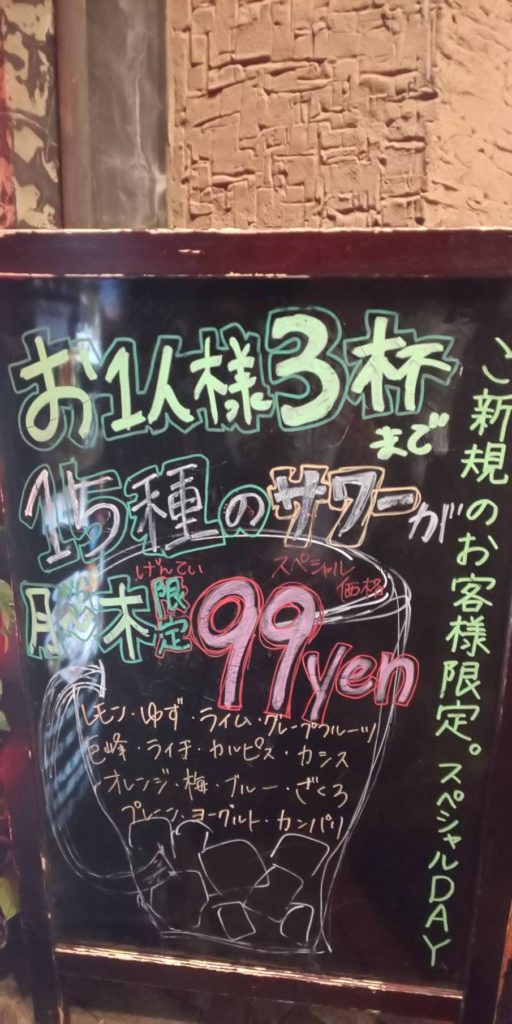 お1人様3杯まで
15種のサワーが
げんてい スペシャル
月〜木限定99yen
価格
レモン・ゆず・ライム・グレープフルーツ
巨峰・ライチ・カルピス・カシス
オレンジ・梅・ブルー・ざくろ
プレーン・ヨーグルト・カンパリ
ご新規のお客様限定。スペシャルDAY